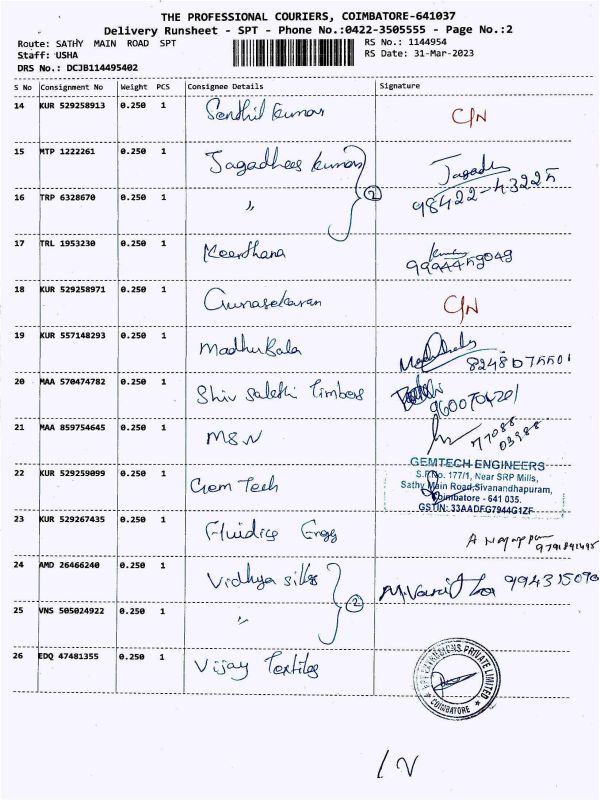 THE PROFESSIONAL COURIERS, COIMBATORE-641037
Delivery Runsheet - SPT - Phone No.:0422-3505555 - Page No.:2
Route: SATHY MAIN ROAD SPT
RS No.: 1144954
Staff: USHA
RS Date: 31-Mar-2023
DRS No.: DCJB114495402
S No Consignment No Weight PCS Consignee Details Signature
14 KUR 529258913 0.250 1 Sendhil Kumar C/N
15 MTP 1222261 0.250 1 Jagadhees Kumar
16 TRP 6328670 0.250 1 " 2
17 TRL 1953230 0.250 1 Keerthana
18 KUR 529258971 0.250 1 Gunasekaran C/N
19 KUR 557148293 0.250 1 MadhuBala
20 MAA 570474782 0.250 1 Shiv Sakthi Timbers 9600704201
21 MAA 859754645 0.250 1 MSN 77088
03988
GEMTECH ENGINEERS
S.F.No. 177/1, Near SRP Mills,
Sathy Main Road,Sivanandhapuram,
Coimbatore - 641 035.
GSTIN: 33AADFG7944G1ZF
22 KUR 529259099 0.250 1 Gem Tech
23 KUR 529267435 0.250 1 Fluidics Engg
24 AMD 26466240 0.250 1 Vidhya silks
25 VNS 505024922 0.250 1 " 2
26 EDQ 47481355 0.250 1 Vijay Textiles
PRIVATE LIMITED
COIMBATORE